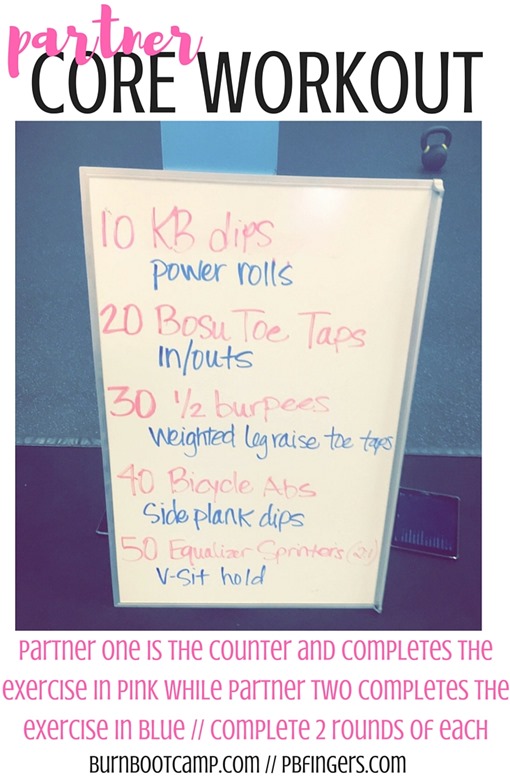 partner
CORE WORKOUT
10 KB dips
power rolls
20 Bosu Toe Taps
in/outs
30 1/2 burpees
weighted leg raise toe taps
40 Bicycle Abs
Side plank dips
50 Equalizer Sprinters (2:1)
V-Sit hold
PARTNER ONE IS THE COUNTER AND COMPLETES THE
EXERCISE IN PINK WHILE PARTNER TWO COMPLETES THE
EXERCISE IN BLUE // COMPLETE 2 ROUNDS OF EACH
BURNBOOTCAMP.COM // PBFINGERS.COM